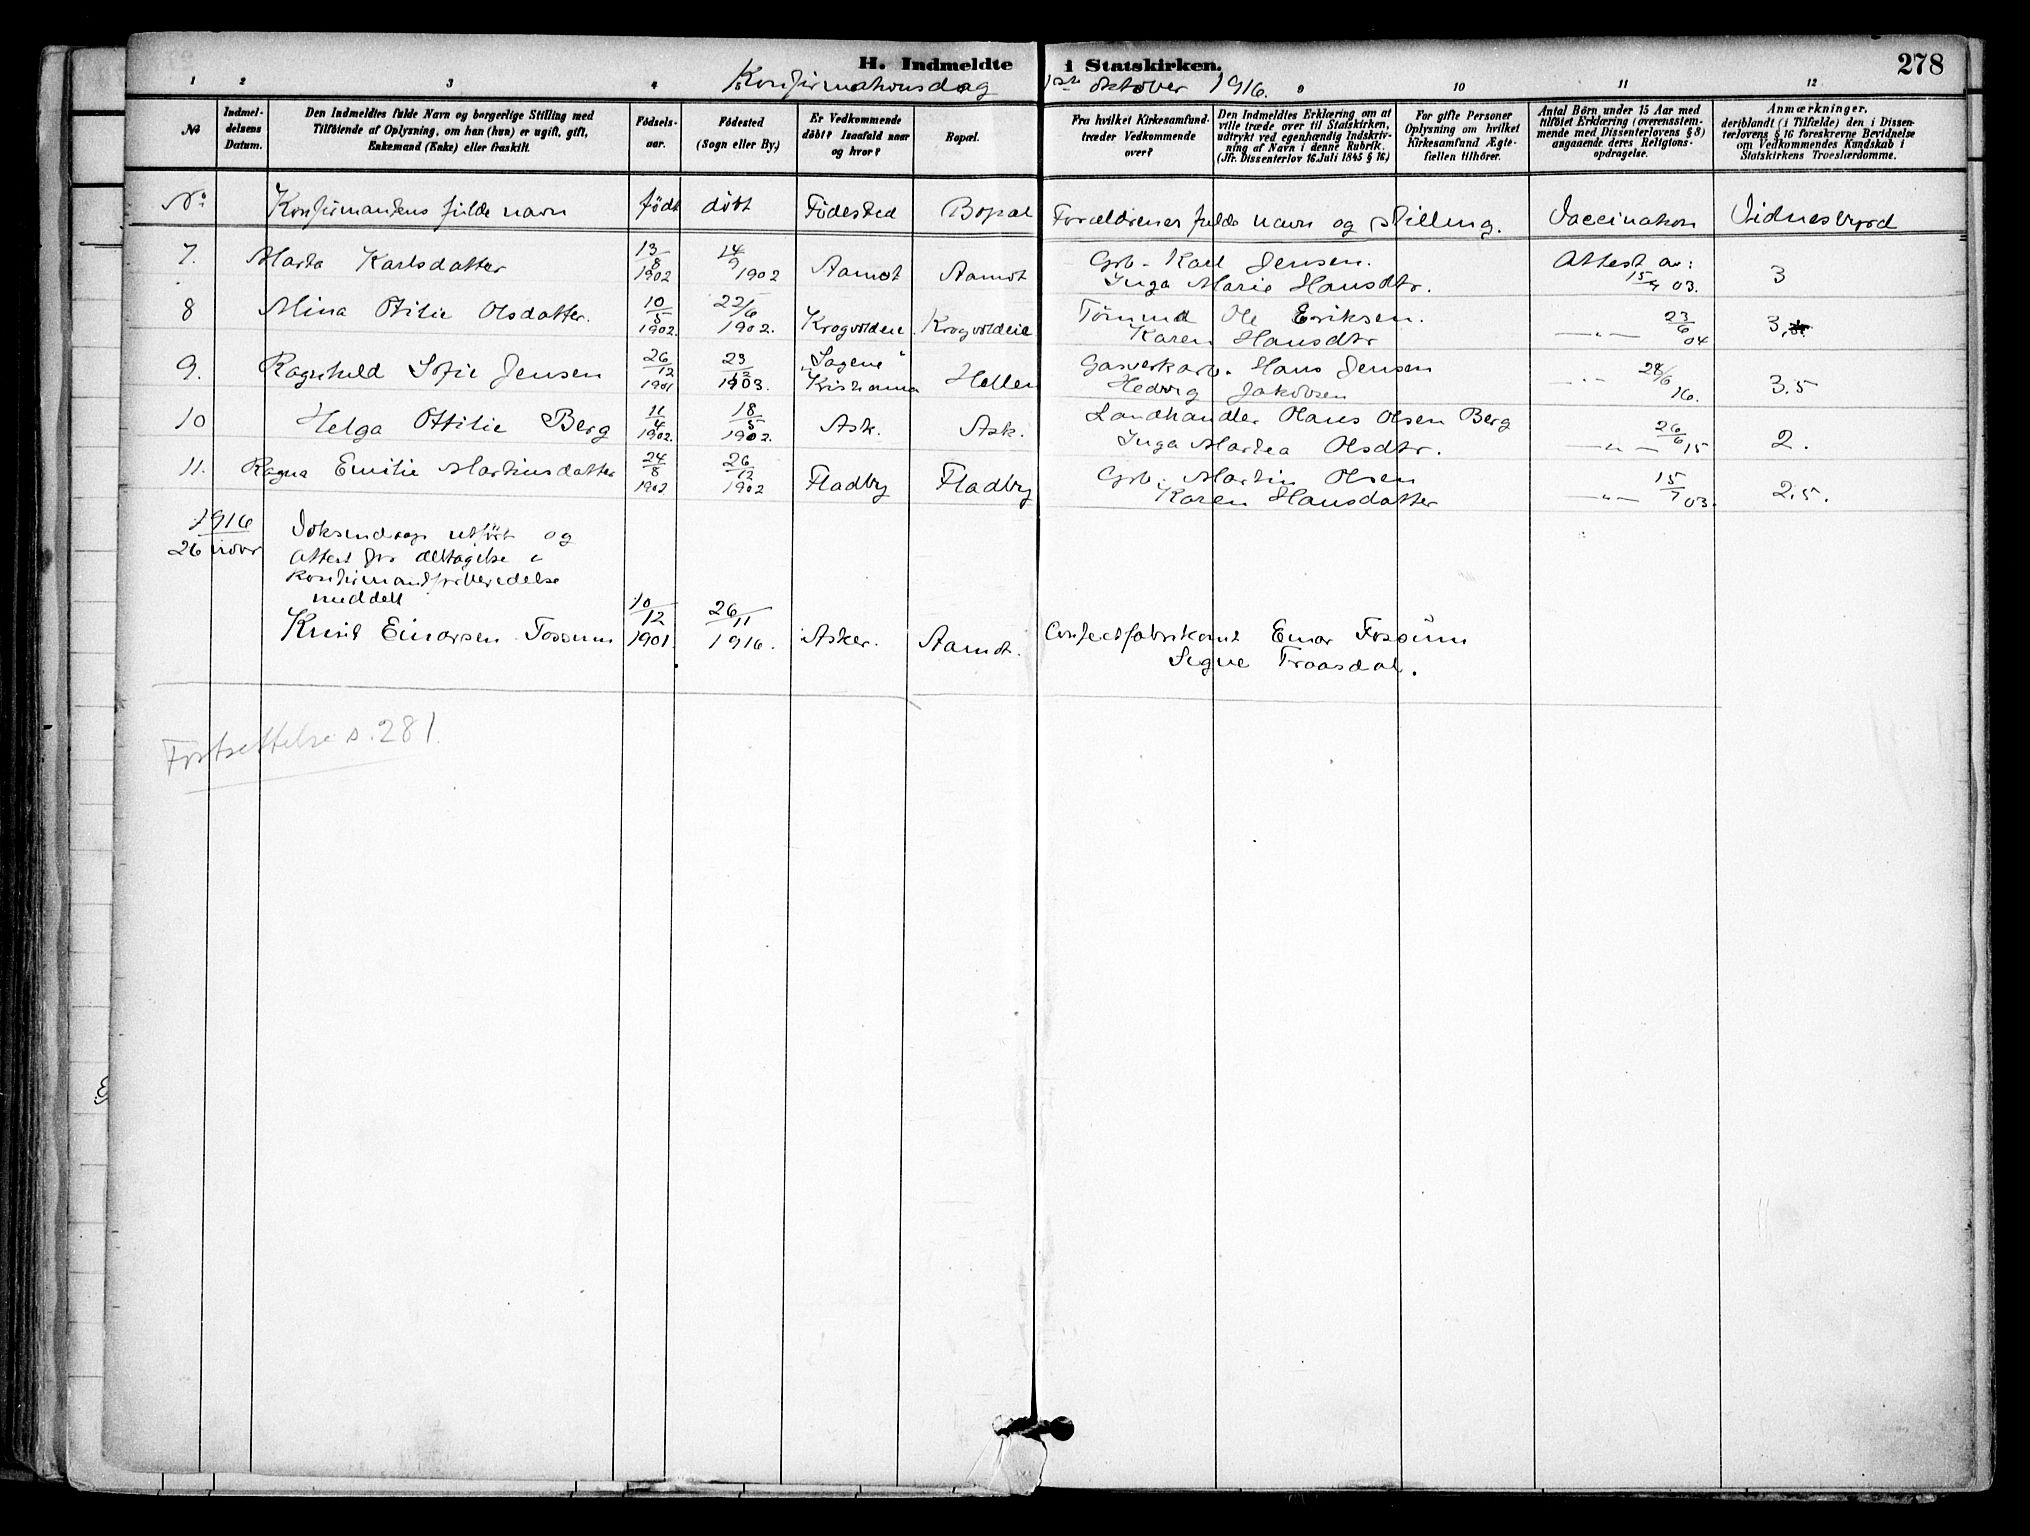 H. Indmeldte i Statskirken.
278
Konfirmationsdag 1ste oktober 1916.
1 2 3 4 9 10 11 12
No
Indmel-
delsens
Datum.
Den Indmeldtes fulde Navn og borgerlige Stilling med
Tilføiende af Oplysning, om han (hun) er ugift, gift,
Enkemand (Enke) eller fraskilt.
Fødsels-
aar.
Fødested
(Sogn eller By.)
Er Vedkommende
døbt? Isaafald naar
og hvor?
Bopæl.
Fra hvilket Kirkesamfund
træder Vedkommende
over?
Den Indmeldtes Erklæring om at
ville træde over til Statskirken,
udtrykt ved egenhændig Indskriv-
ning af Navn i denne Rubrik.
(Jfr. Dissenterlov 16. Juli 1845 § 16.)
For gifte Personer
Oplysning om hvilket
Kirkesamfund Ægte-
fællen tilhører.
Antal Børn under 15 Aar med
tilføiet Erklæring (overensstem-
mende med Dissenterlovens § 8)
angaaende deres Religions-
opdragelse.
Anmærkninger,
deriblandt (i Tilfælde) den i Dissen-
terlovens § 16 foreskrevne Bevidnelse
om Vedkommendes Kundskab i
Statskirkens Troeslærdomme.
No Konfirmantens fulde navn født døbt Fødested Bopæl Forældrenes fulde navn og stilling. Vaccination Vidnesbyrd
7. Marta Karlsdatter 13/8 1902 14/9 1902 Aamot Aamot Grb. Karl Jensen. Attest av: 15/4 03. 3
Inga Marie Hansdtr.
8 Mina Otilie Olsdatter. 10/5 1902. 22/6 1902. Krogvoldeie Krogvoldeie Tømmd Ole Eriksen. —"— 23/6 04 3.
Karen Hansdtr
9. Ragnhild Sofie Jensen 26/12 1901 23/12 1903. "Sagene" Kristiania Hellen Gasverkarb. Hans Jensen —"— 28/6 16. 3.5
Hedvig Jakobsen
10 Helga Ottilie Berg 11/4 1902. 18/5 1902. Ask. Ask. Landhandler Hans Olsen Berg —"— 26/6 15 2.
Inga Martea Olsdtr.
11. Ragna Emilie Martinsdatter 24/8 1902 26/12 1902 Fladby Fladby Grb. Martin Olsen —"— 15/7 03. 2.5.
Karen Hansdatter
1916
26 novr Voksendaap utført og
attest for deltagelse i
konfirmantforberedelse
meddelt
Knut Einarsen Fossum 10/12 1901. 26/11 1916. Asker. Aamot. Confectfabrikant Einar Fossum
Signe Traasdal.
Fortsettelse s. 281.